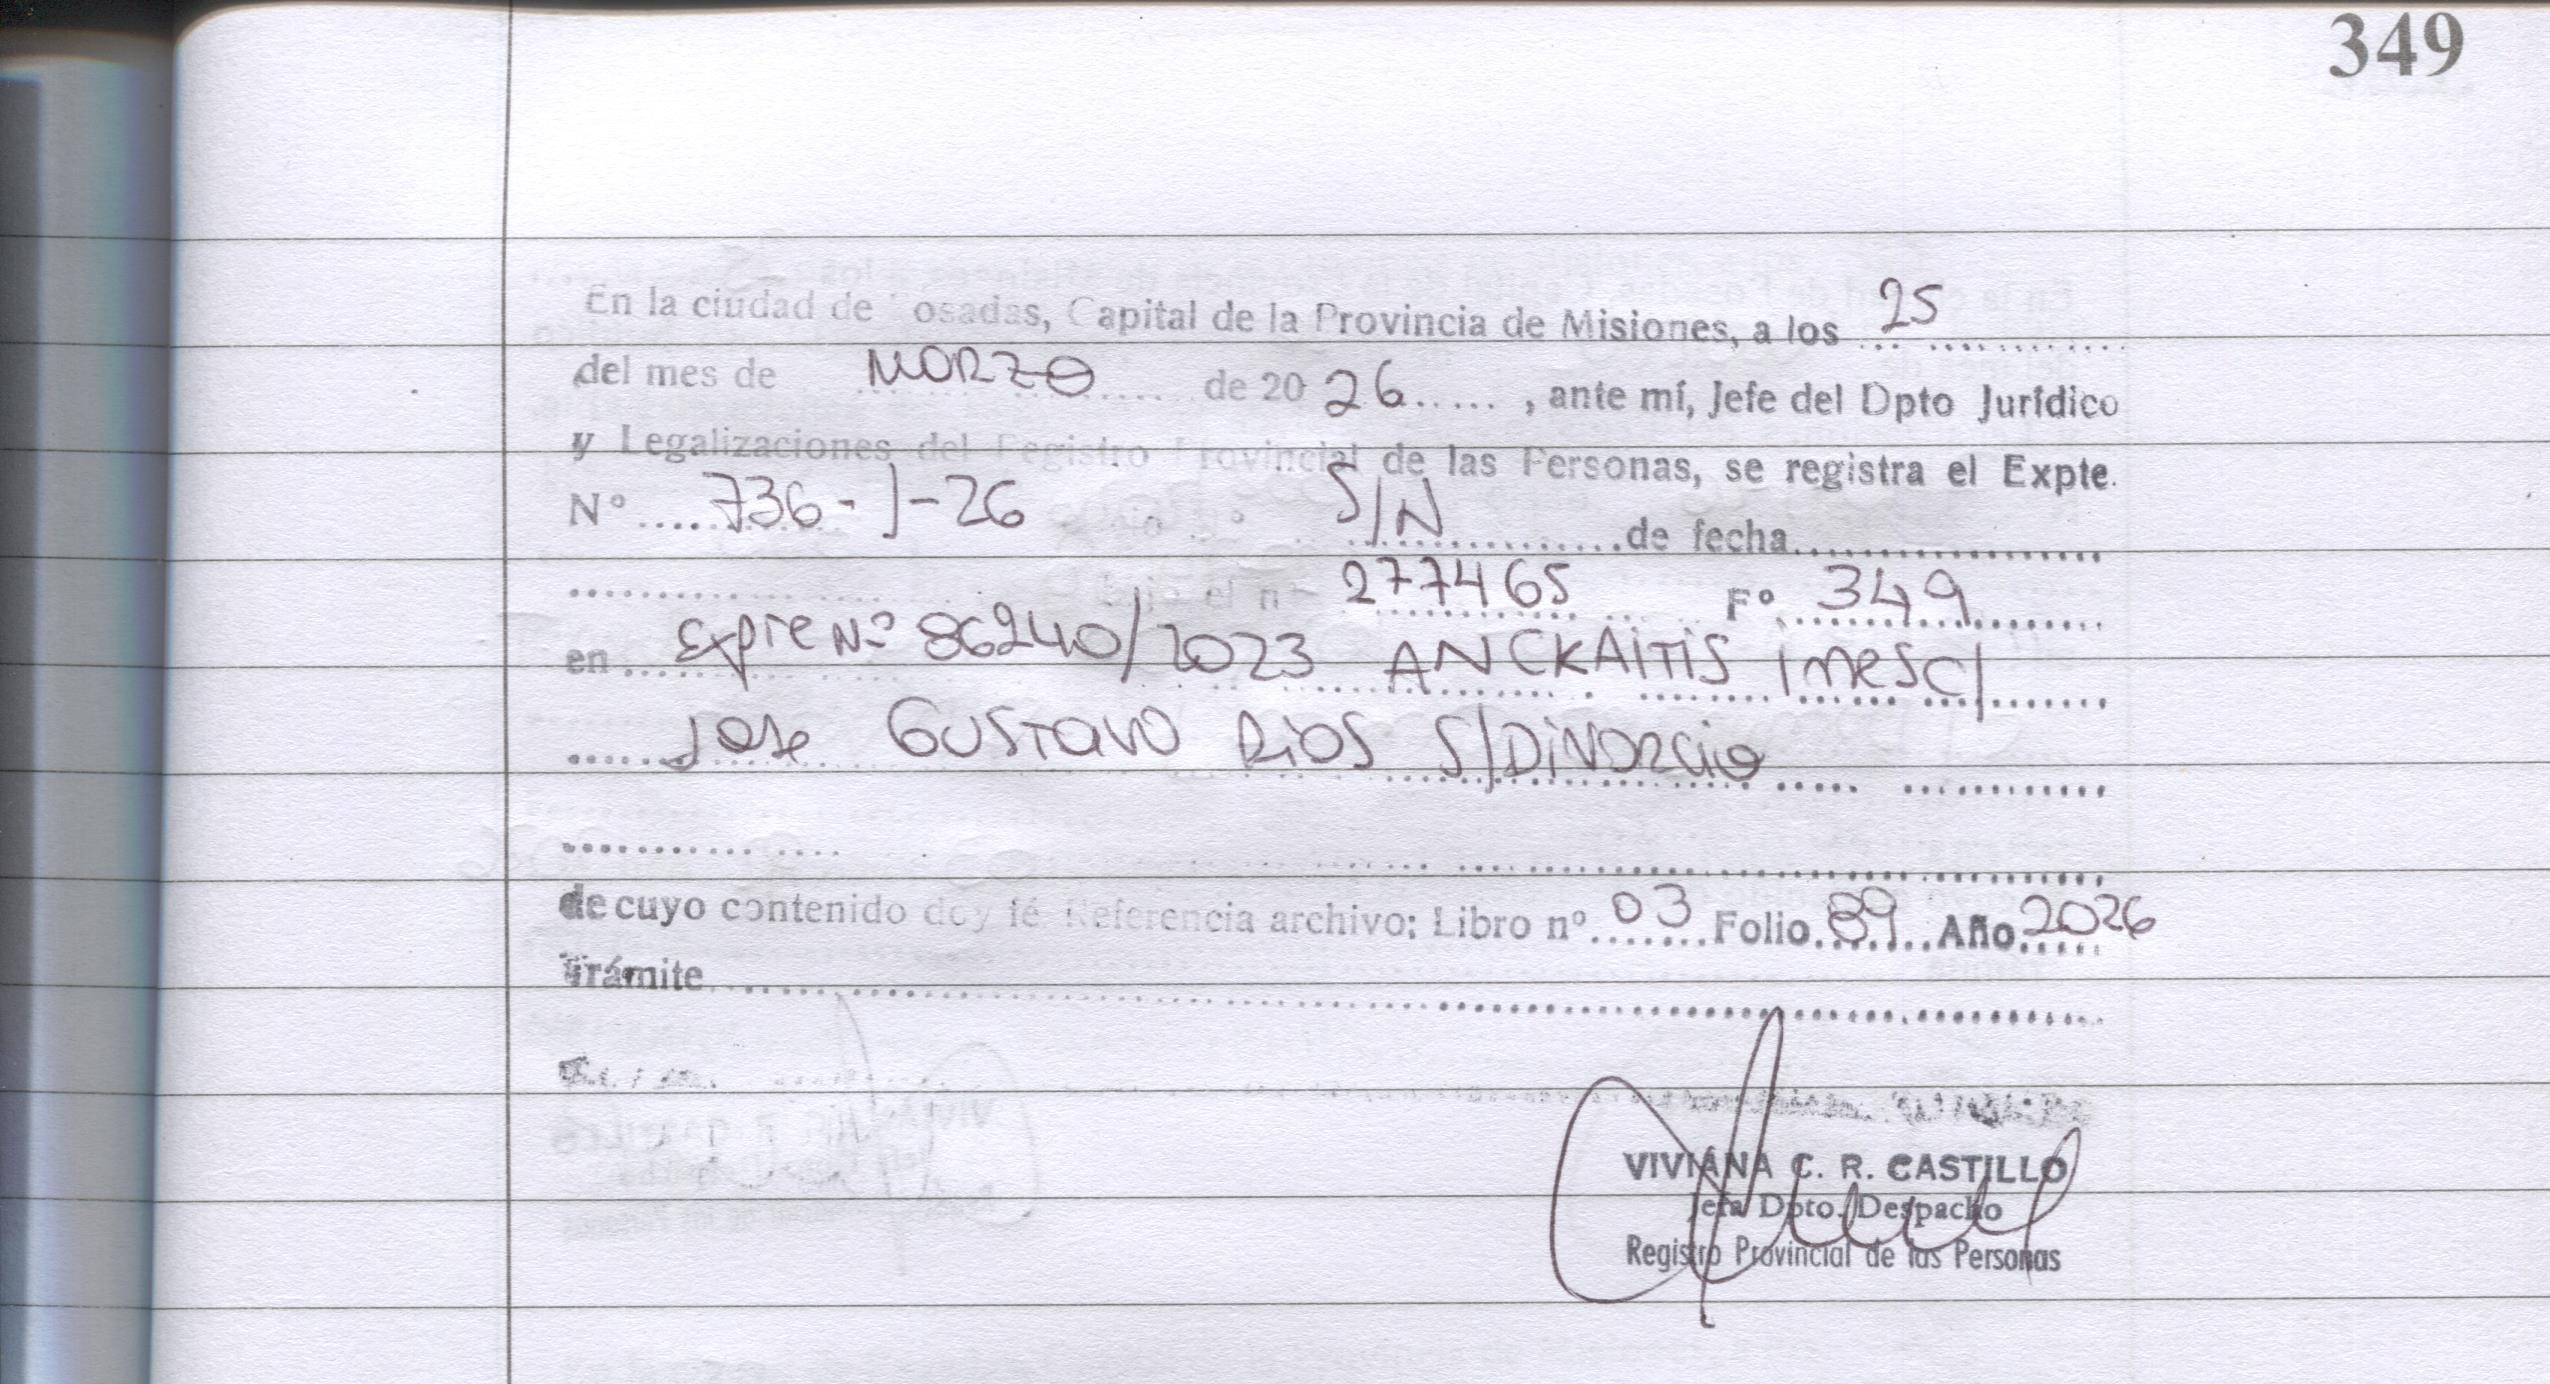 349
En la ciudad de Posadas, Capital de la Provincia de Misiones, a los 25
del mes de MORZO de 20 26 , ante mí, Jefe del Dpto Jurídico
y Legalizaciones del Registro Provincial de las Personas, se registra el Expte.
Nº 736-J-26 S/N de fecha
bajo el nº 277465 Fº 349
en Expte Nº 86240/2023 ANCKAITIS INES C/
Jose GUSTAVO RIOS S/DIVORCIO
de cuyo contenido doy fé Referencia archivo: Libro nº 03 Folio 89 Año 2026
Trámite
VIVIANA C. R. CASTILLO
Jefa Dpto. Despacho
Registro Provincial de las Personas